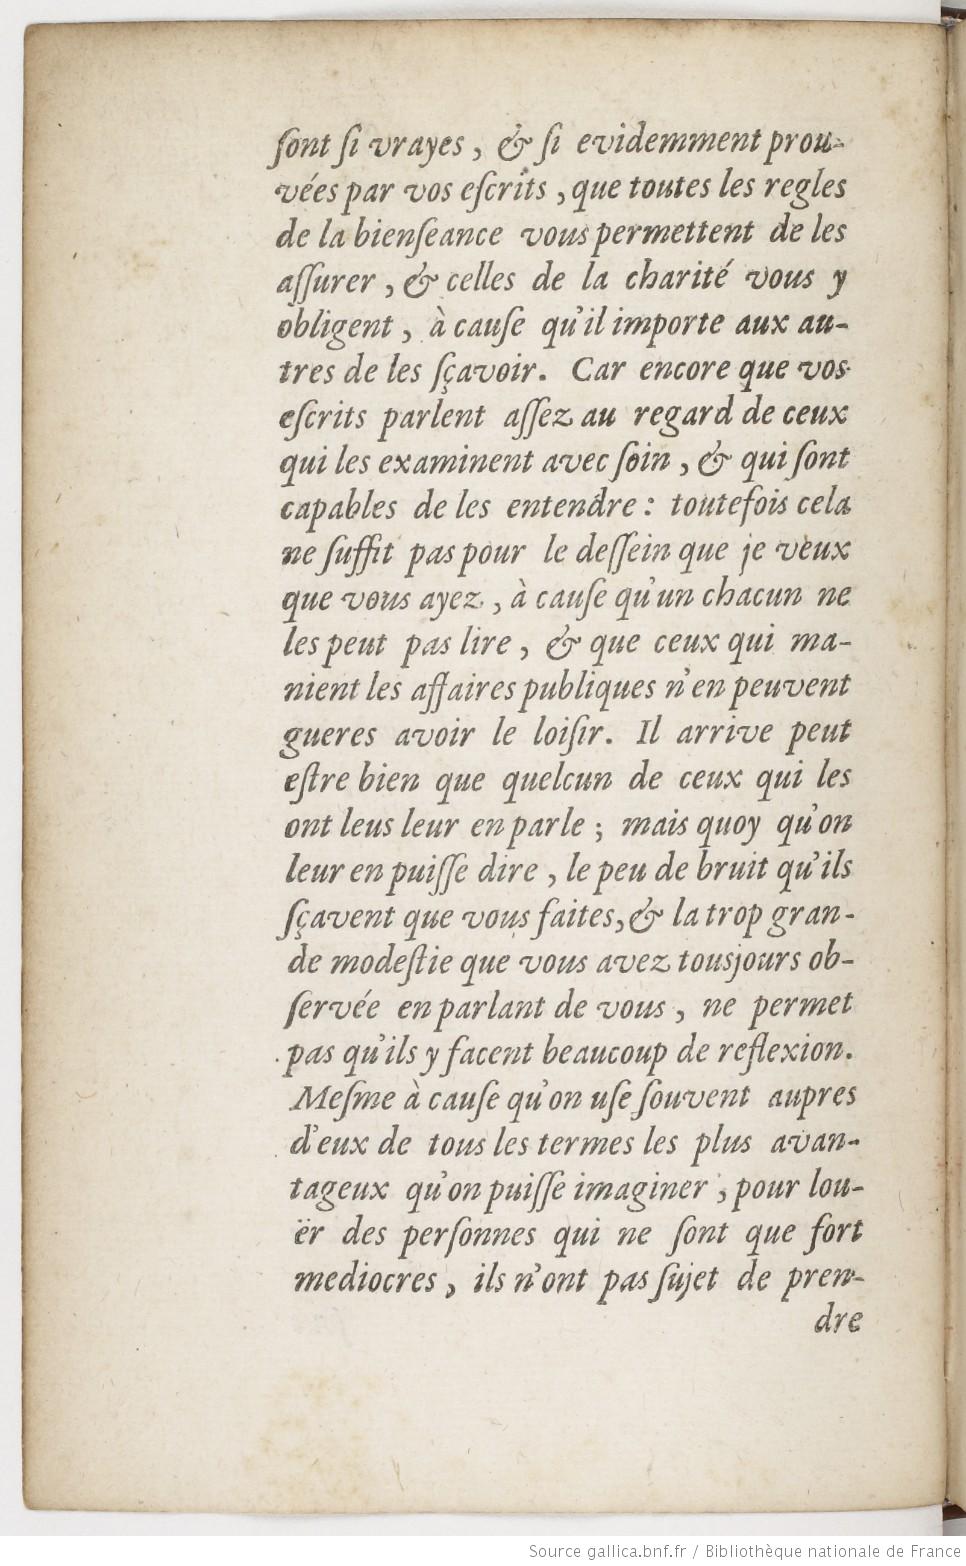 ſont ſi vrayes, & ſi evidemment prou-
vées par vos eſcrits, que toutes les regles
de la bienſeance vous permettent de les
aſſurer, & celles de la charité vous y
obligent, à cauſe qu'il importe aux au-
tres de les ſçavoir. Car encore que vos
eſcrits parlent aſſez au regard de ceux
qui les examinent avec ſoin, & qui ſont
capables de les entendre: toutefois cela
ne ſuffit pas pour le deſſein que je veux
que vous ayez, à cauſe qu'un chacun ne
les peut pas lire, & que ceux qui ma-
nient les affaires publiques n'en peuvent
gueres avoir le loiſir. Il arrive peut
eſtre bien que quelcun de ceux qui les
ont leus leur en parle; mais quoy qu'on
leur en puiſſe dire, le peu de bruit qu'ils
ſçavent que vous faites, & la trop gran-
de modeſtie que vous avez tousjours ob-
ſervée en parlant de vous, ne permet
pas qu'ils y facent beaucoup de reflexion.
Meſme à cauſe qu'on uſe ſouvent aupres
d'eux de tous les termes les plus avan-
tageux qu'on puiſſe imaginer, pour lou-
ër des perſonnes qui ne ſont que fort
mediocres, ils n'ont pas ſujet de pren-
dre
Source gallica.bnf.fr / Bibliothèque nationale de France